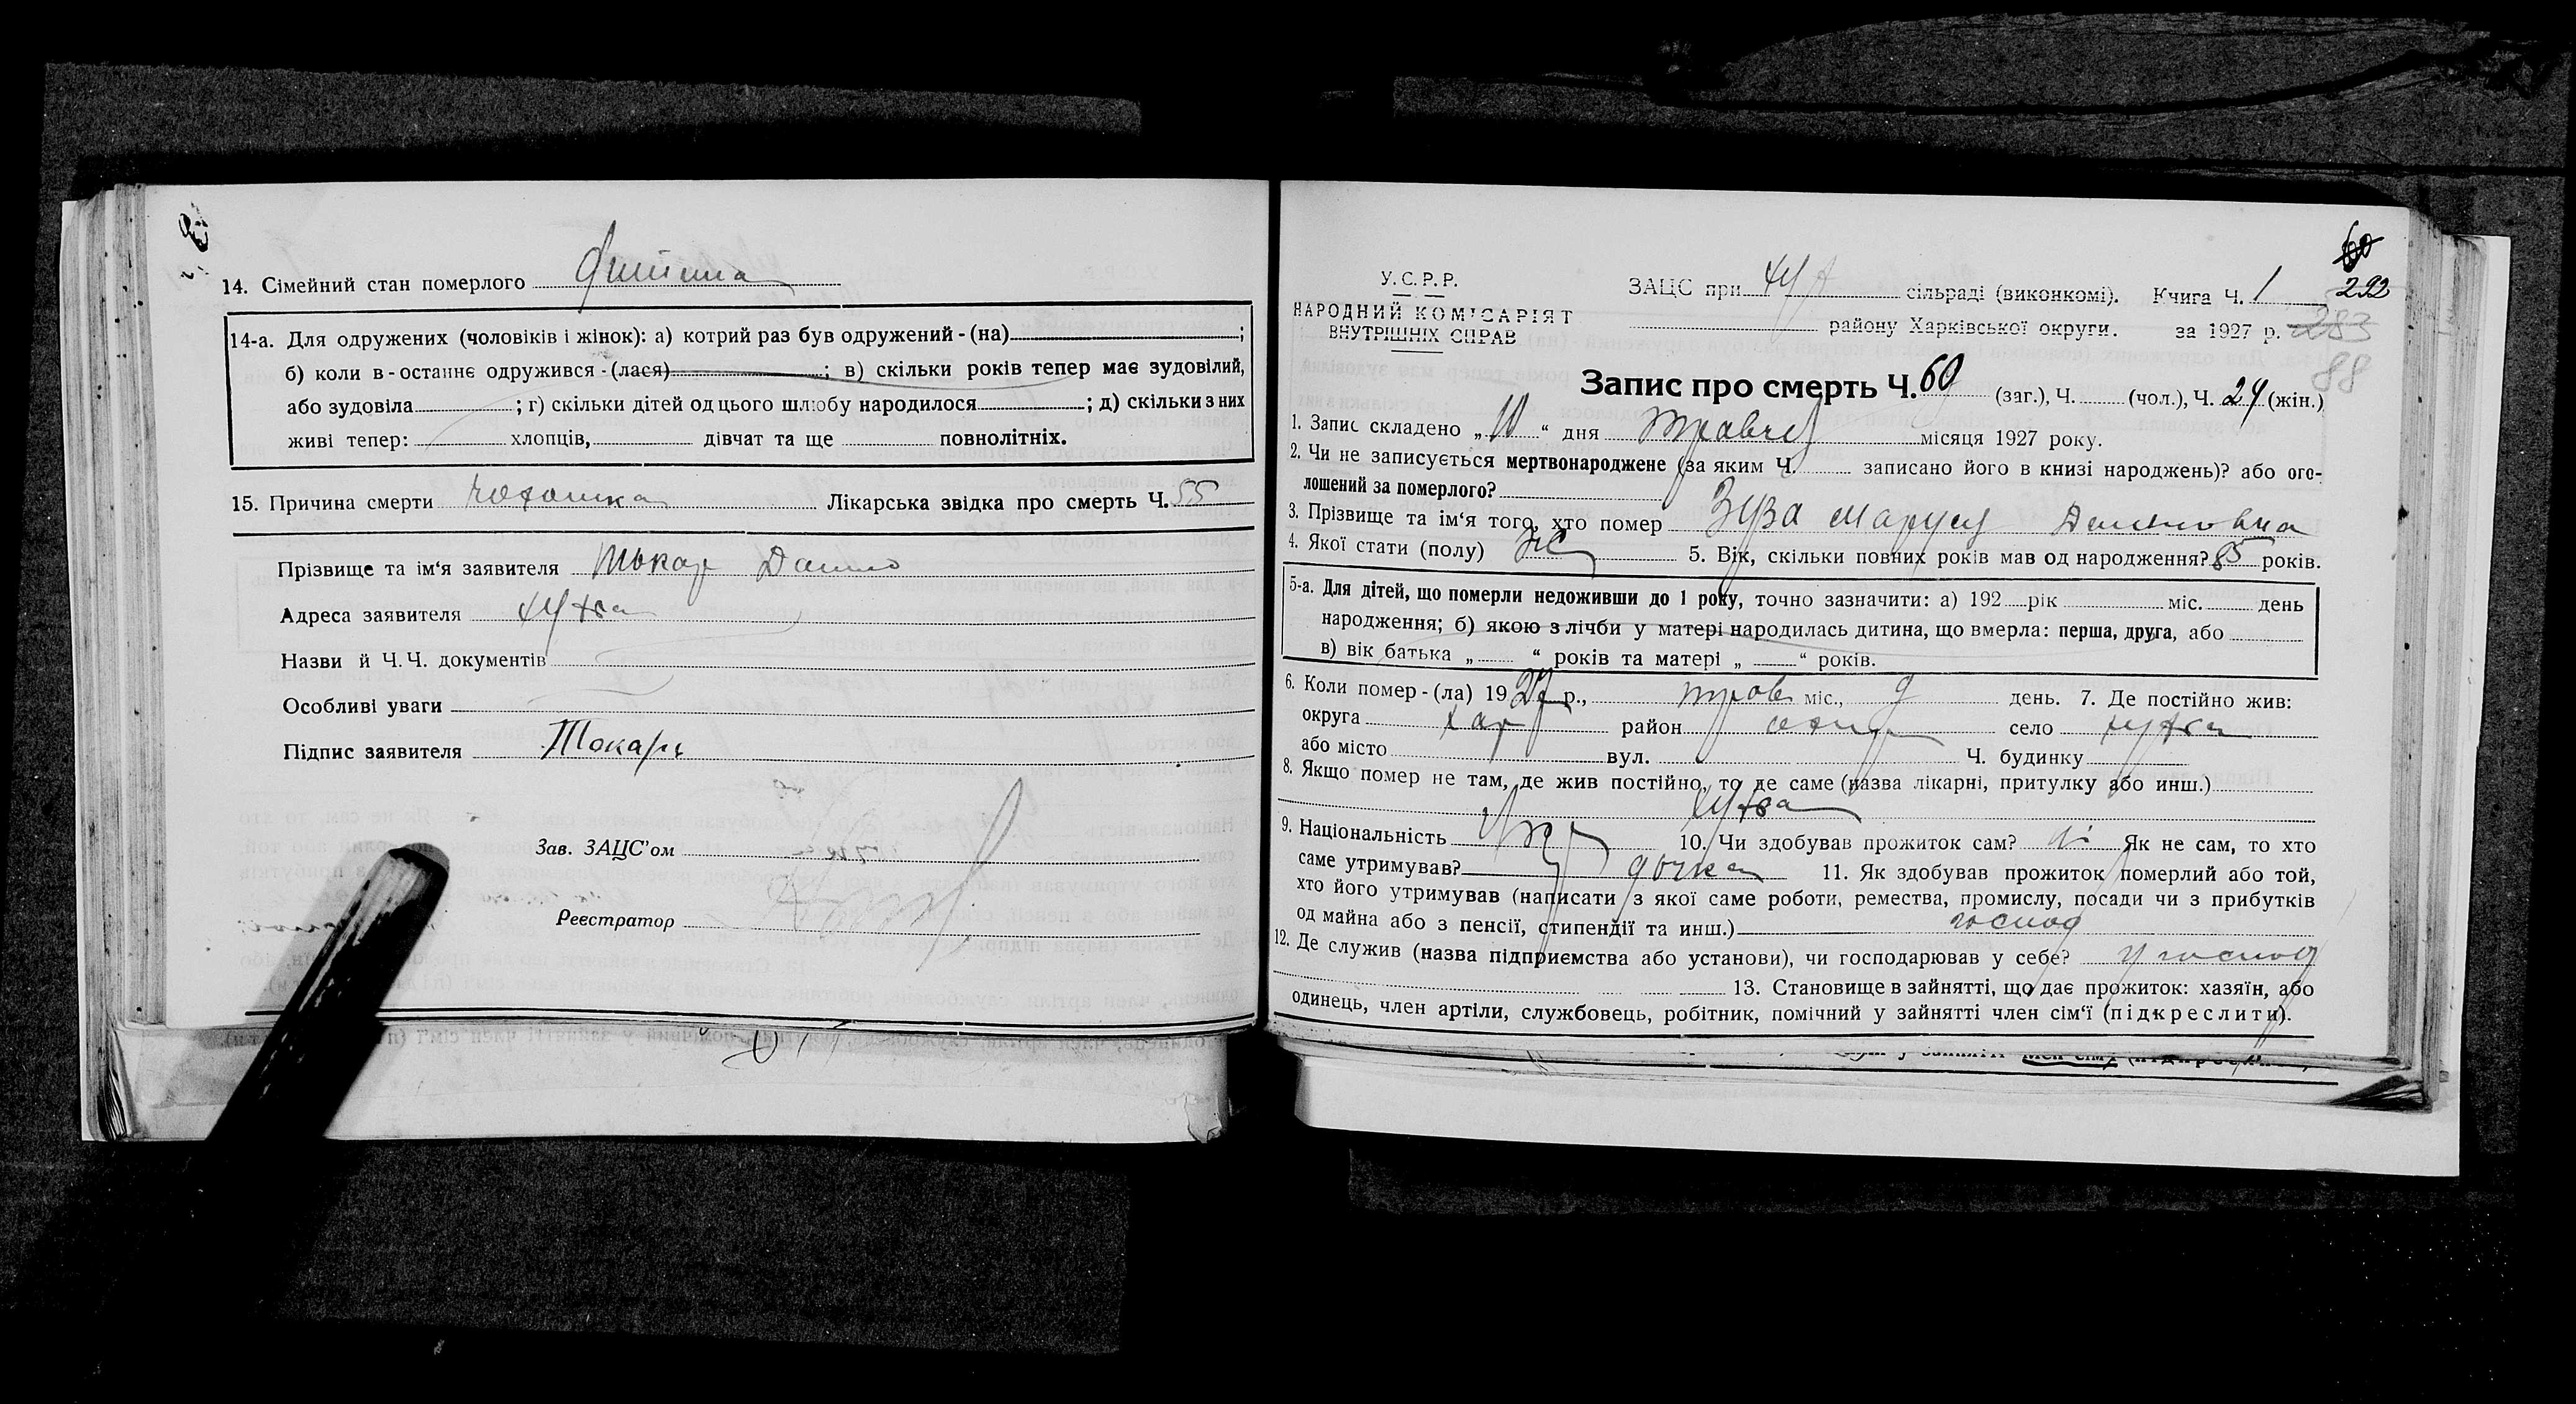 14. Сімейний стан померлого
14-а. Для одружених (чоловіків і жінок): а) котрий раз був одружений - (на) ;
б) коли в-останнє одружився - (лася) ; в) скільки років тепер має зудовілий,
або зудовіла ; г) скільки дітей од цього шлюбу народилося ; д) скільки з них
живі тепер: хлопців, дівчат та ще повнолітніх.
15. Причина смерти Лікарська звідка про смерть Ч. 55
Прізвище та ім'я заявителя Токар Данило
Адреса заявителя
Назви й Ч.Ч. документів
Особливі уваги
Підпис заявителя Токарь
Зав. ЗАЦС'ом
Реєстратор
60
292
283
88
У.С.Р.Р.
НАРОДНИЙ КОМІСАРІЯТ
ВНУТРІШНІХ СПРАВ
ЗАЦС при сільраді (виконкомі). Книга Ч. 1
району Харківської округи. за 1927 р.
Запис про смерть Ч. 60 (заг.), Ч. (чол.), Ч. 24 (жін.)
1. Запис складено „ 10 “ дня травня місяця 1927 року.
2. Чи не записується мертвонароджене (за яким Ч. записано його в книзі народжень)? або ого-
лошений за померлого?
3. Прізвище та ім'я того, хто помер Зуза Маруся
4. Якої стати (полу) Ж 5. Вік, скільки повних років мав од народження? 85 років.
5-а. Для дітей, що померли недоживши до 1 року, точно зазначити: а) 192 рік міс. день
народження; б) якою з лічби у матері народилась дитина, що вмерла: перша, друга, або
в) вік батька „ “ років та матері „ “ років.
6. Коли помер - (ла) 1927 р., трав міс., 9 день. 7. Де постійно жив:
округа Хар район село
або місто вул. Ч. будинку
8. Якщо помер не там, де жив постійно, то де саме (назва лікарні, притулку або инш.)
9. Національність Укр 10. Чи здобував прожиток сам? ні Як не сам, то хто
саме утримував? дочка 11. Як здобував прожиток померлий або той,
хто його утримував (написати з якої саме роботи, ремества, промислу, посади чи з прибутків
од майна або з пенсії, стипендії та инш.) господ
12. Де служив (назва підприємства або установи), чи господарював у себе? у господ
13. Становище в зайнятті, що дає прожиток: хазяїн, або
одинець, член артіли, службовець, робітник, помічний у зайнятті член сім'ї (підкреслити).